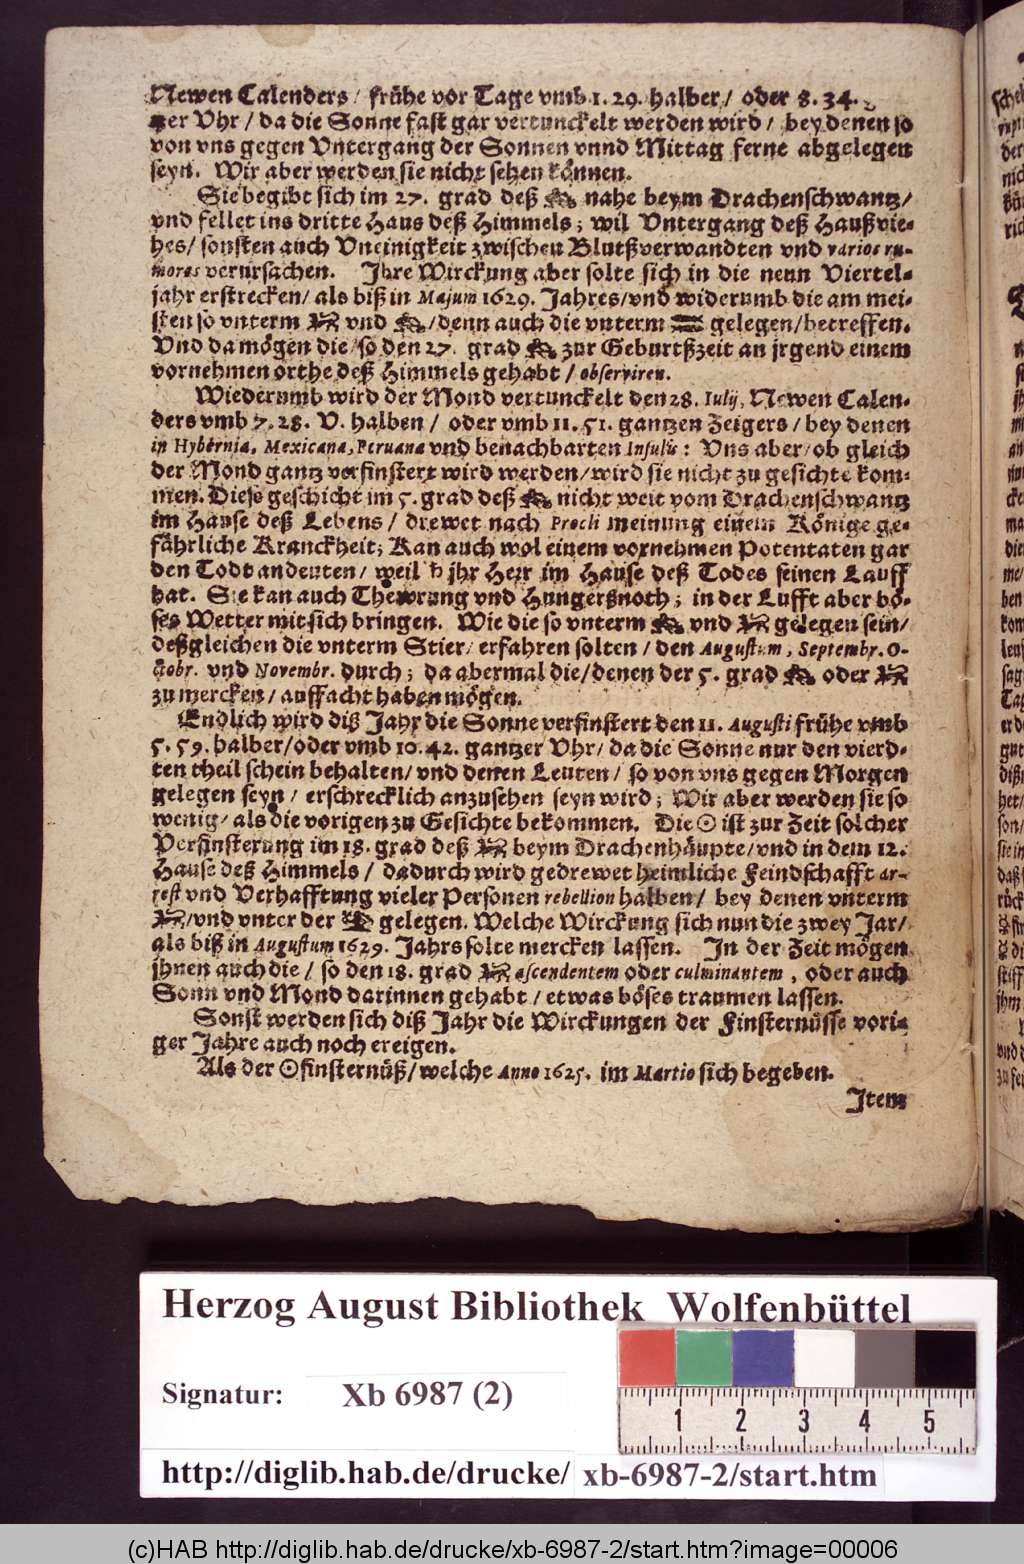 Newen Calenders / frühe vor Tage vmb 1. 29. halber / oder 8. 34.
tzer Vhr / da die Sonne fast gar vertunckelt werden wird / bey denen so
von vns gegen Vntergang der Sonnen vnnd Mittag ferne abgelegen
seyn. Wir aber werden sie nicht sehen können.
Sie begibt sich im 27. grad deß ♌ nahe beym Drachenschwantz /
vnd fellet ins dritte Haus deß Himmels; wil Vntergang deß Haußvie-
hes / sonsten auch Vneinigkeit zwischen Blutßverwandten vnd varios ru-
mores verursachen. Ihre Wirckung aber solte sich in die neun Viertel-
jahr erstrecken / als biß in Majum 1629. Jahres / vnd widerumb die am mei-
sten so vnterm vnd ♌ / denn auch die vnterm ♒ gelegen / betreffen.
Vnd da mögen die / so den 27. grad ♌ zur Geburtßzeit an jrgend einem
vornehmen orthe deß Himmels gehabt / observiren.
Wiederumb wird der Mond vertunckelt den 28. Iulij, Newen Calen-
ders vmb 7. 28. V. halben / oder vmb 11. 51. gantzen Zeigers / bey denen
in Hybérnia, Mexicana, Peruana vnd benachbarten Insulis: Vns aber / ob gleich
der Mond gantz verfinstert wird werden / wird sie nicht zu gesichte kom-
men. Diese geschicht im 5. grad deß nicht weit vom Drachenschwantz
im Hause deß Lebens / drewet nach Procli meinung einem Könige ge-
fährliche Kranckheit; Kan auch wol einem vornehmen Potentaten gar
den Todt andeuten / weil ♄ jhr Herr im Hause deß Todes seinen Lauff
hat. Sie kan auch Thewrung vnd Hungerßnoth; in der Lufft aber bö-
ses Wetter mit sich bringen. Wie die so vnterm vnd gelegen sein /
deßgleichen die vnterm Stier / erfahren solten / den Augustum, Septembr. O-
ctobr. vnd Novembr. durch; da abermal die / denen der 5. grad oder
zu mercken / auff acht haben mögen.
Endlich wird diß Jahr die Sonne verfinstert den 11. Augusti frühe vmb
5. 59. halber / oder vmb 10. 42. gantzer Vhr / da die Sonne nur den vierd-
ten theil schein behalten / vnd denen Leuten / so von vns gegen Morgen
gelegen seyn / erschrecklich anzusehen seyn wird; Wir aber werden sie so
wenig / als die vorigen zu Gesichte bekommen. Die ☉ ist zur Zeit solcher
Verfinsterung im 18. grad deß beym Drachenhäupte / vnd in dem 12.
Hause deß Himmels / dadurch wird gedrewet heimliche Feindschafft ar-
rest vnd Verhafftung vieler Personen rebellion halben / bey denen vnterm
/ vnd vnter der gelegen. Welche Wirckung sich nun die zwey Jar /
als biß in Augustum 1629. Jahrs solte mercken lassen. In der Zeit mögen
jhnen auch die / so den 18. grad ascendentem oder culminantem, oder auch
Sonn vnd Mond darinnen gehabt / etwas böses traumen lassen.
Sonst werden sich diß Jahr die Wirckungen der Finsternüsse vori-
ger Jahre auch noch ereigen.
Als der ☉finsternüß / welche Anno 1625. im Martio sich begeben.
Item
Herzog August Bibliothek Wolfenbüttel
Signatur: Xb 6987 (2)
1 2 3 4 5
http://diglib.hab.de/drucke/ xb-6987-2/start.htm
(c)HAB http://diglib.hab.de/drucke/xb-6987-2/start.htm?image=00006